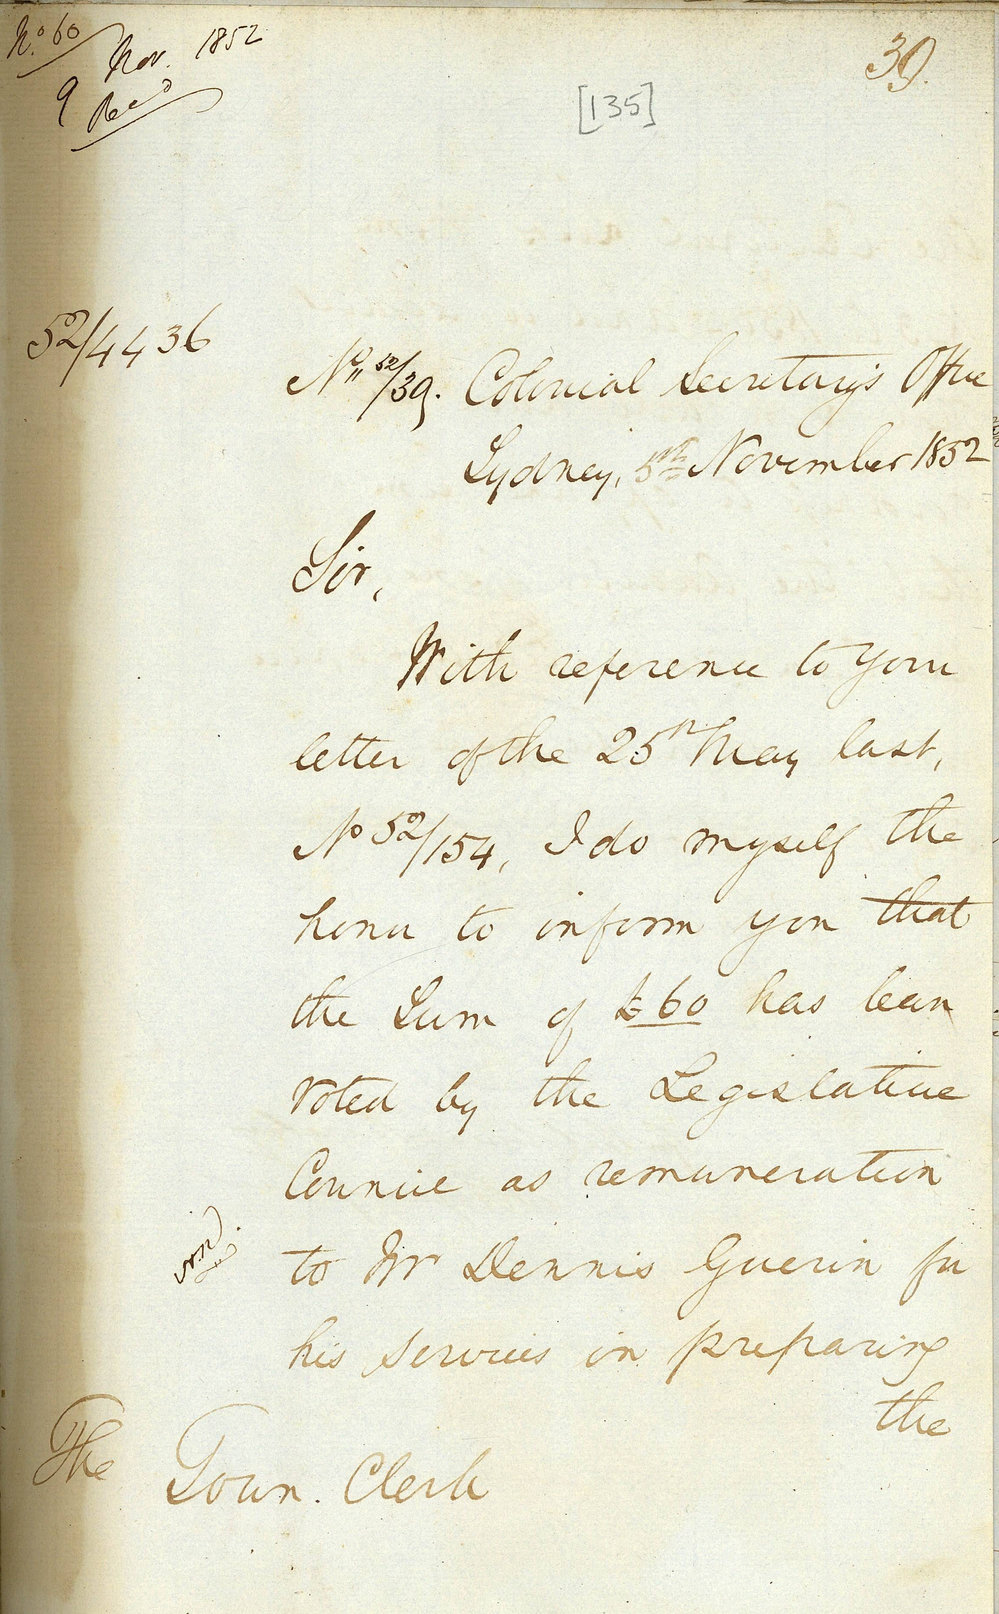 No. 60
9 Nov. 1852
Recd
39.
[135]
52/4436
No. 52/39. Colonial Secretary's Office
Sydney, 5th November 1852
Sir,
With reference to your
letter of the 25th May last,
No 52/154, I do myself the
honor to inform you that
the Sum of £60 has been
voted by the Legislative
Council as remuneration
to Mr Dennis Guerin for
his services in preparing
the
The Town Clerk